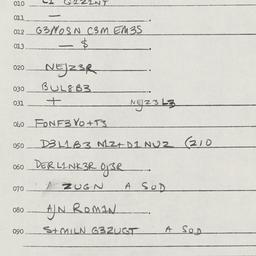 010 LI G1ZINT
011 —
012 G3MOSN C3M EM3S
013 — $
020 NEJZ3R
030 BUL8B3
031 + NEJZ3 L3
040 FONF3VO+T3
050 D3L1B3 N1Z+D1 NUZ (210
060 DERLINK3R OJ3R
070 A ZUGN A SOD
080 AJN ROM1N
090 S+MILN G3ZUGT A SOD